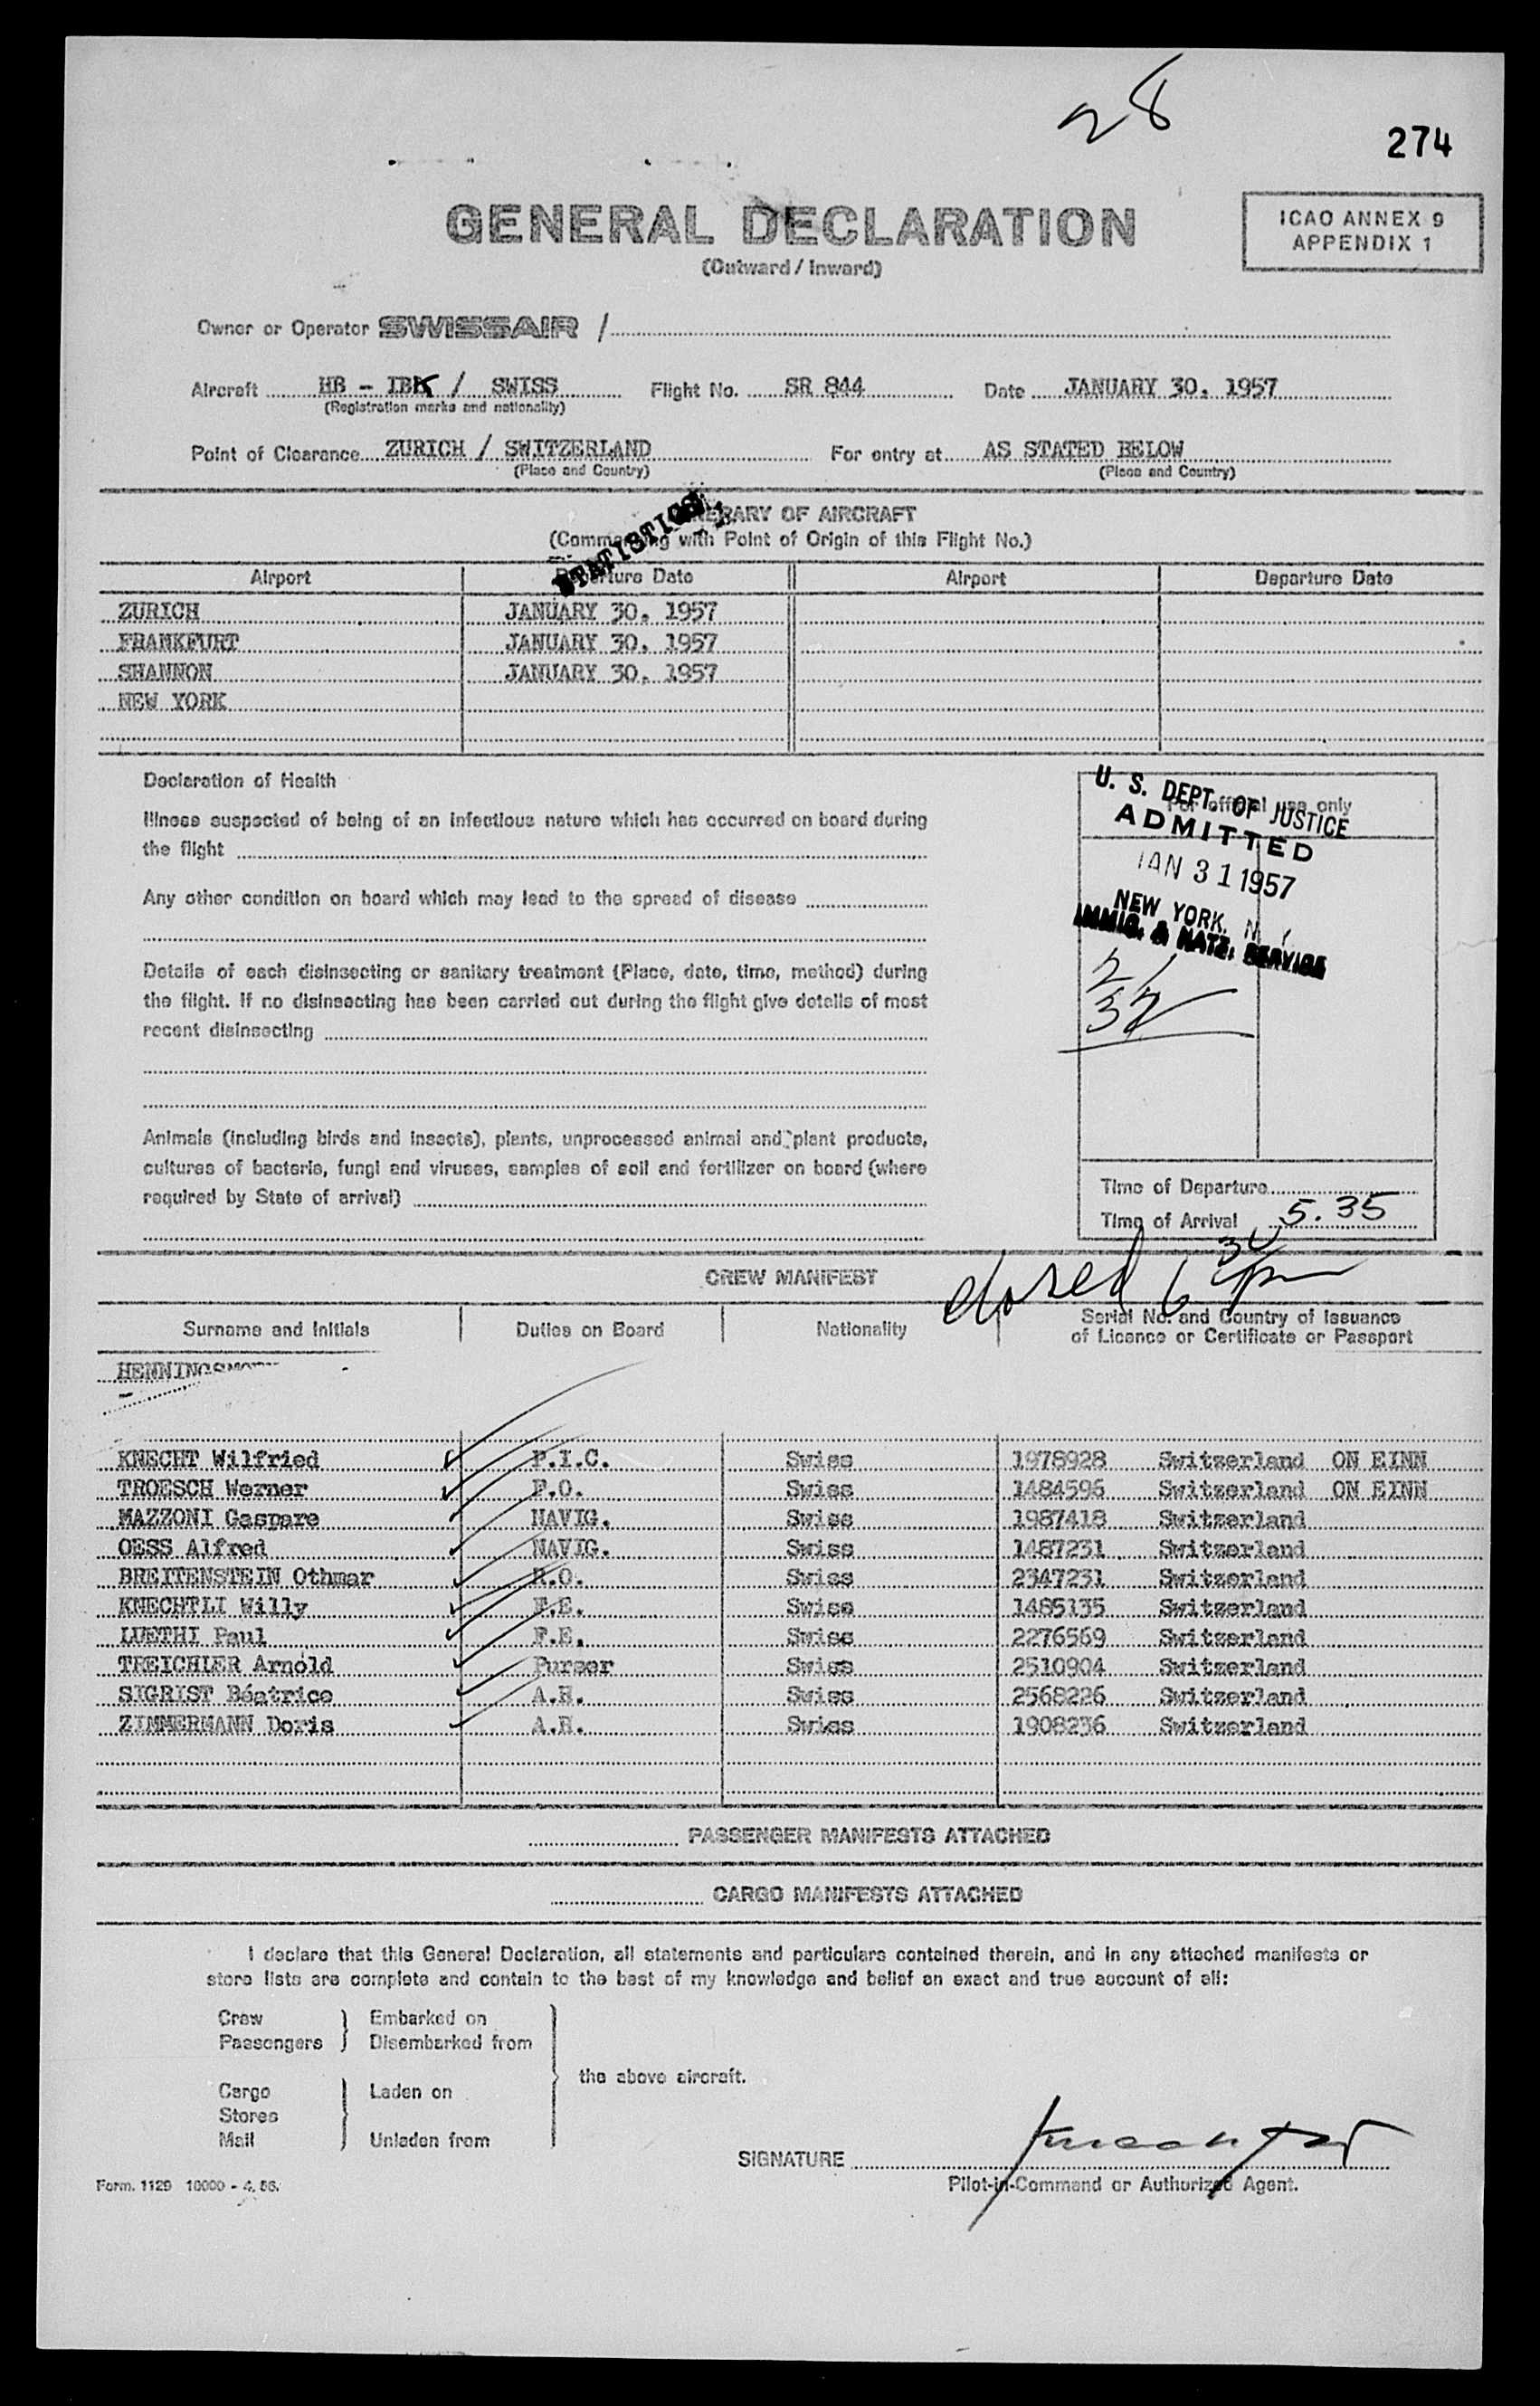 28
274
GENERAL DECLARATION
(Outward / Inward)
ICAO ANNEX 9
APPENDIX 1
Owner or Operator SWISSAIR /
Aircraft HB - IBK / SWISS Flight No. SR 844 Date JANUARY 30. 1957
(Registration marks and nationality)
Point of Clearance ZURICH / SWITZERLAND For entry at AS STATED BELOW
(Place and Country) (Place and Country)
STATISTICS
ITINERARY OF AIRCRAFT
(Commencing with Point of Origin of this Flight No.)
Airport Departure Date Airport Departure Date
ZURICH JANUARY 30. 1957
FRANKFURT JANUARY 30. 1957
SHANNON JANUARY 30. 1957
NEW YORK
Declaration of Health
Illness suspected of being of an infectious nature which has occurred on board during
the flight
Any other condition on board which may lead to the spread of disease
Details of each disinsecting or sanitary treatment (Place, date, time, method) during
the flight. If no disinsecting has been carried out during the flight give details of most
recent disinsecting
Animals (including birds and insects), plants, unprocessed animal and plant products,
cultures of bacteria, fungi and viruses, samples of soil and fertilizer on board (where
required by State of arrival)
For official use only
U. S. DEPT. OF JUSTICE
ADMITTED
JAN 31 1957
NEW YORK, N. Y.
IMMIG. & NATZ. SERVICE
21
32
Time of Departure
Time of Arrival 5.35
closed 6 30 pm
CREW MANIFEST
Surname and Initials Duties on Board Nationality Serial No. and Country of Issuance
of Licence or Certificate or Passport
KNECHT Wilfried P.I.C. Swiss 1978928 Switzerland ON EINN
TROESCH Werner F.O. Swiss 1484596 Switzerland ON EINN
MAZZONI Gaspare NAVIG. Swiss 1987418 Switzerland
OESS Alfred NAVIG. Swiss 1487231 Switzerland
BREITENSTEIN Othmar R.O. Swiss 2347231 Switzerland
KNECHTLI Willy F.E. Swiss 1485135 Switzerland
LUETHI Paul F.E. Swiss 2276569 Switzerland
TREICHLER Arnold Purser Swiss 2510904 Switzerland
SIGRIST Béatrice A.H. Swiss 2568226 Switzerland
ZIMMERMANN Doris A.H. Swiss 1908236 Switzerland
PASSENGER MANIFESTS ATTACHED
CARGO MANIFESTS ATTACHED
I declare that this General Declaration, all statements and particulars contained therein, and in any attached manifests or
store lists are complete and contain to the best of my knowledge and belief an exact and true account of all:
Crew Embarked on
Passengers Disembarked from
the above aircraft.
Cargo Laden on
Stores
Mail Unladen from
SIGNATURE
Pilot-in-Command or Authorized Agent.
Form. 1129 10000 - 4. 56.